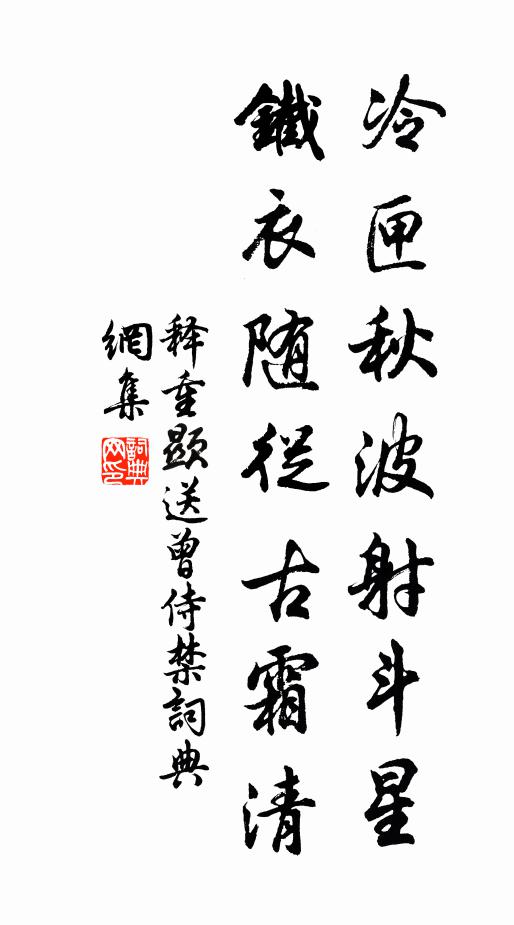 冷匣秋波射斗星
鐵衣随從古霜清
释重顯送曾侍禁詞典
網集
詞典
网印